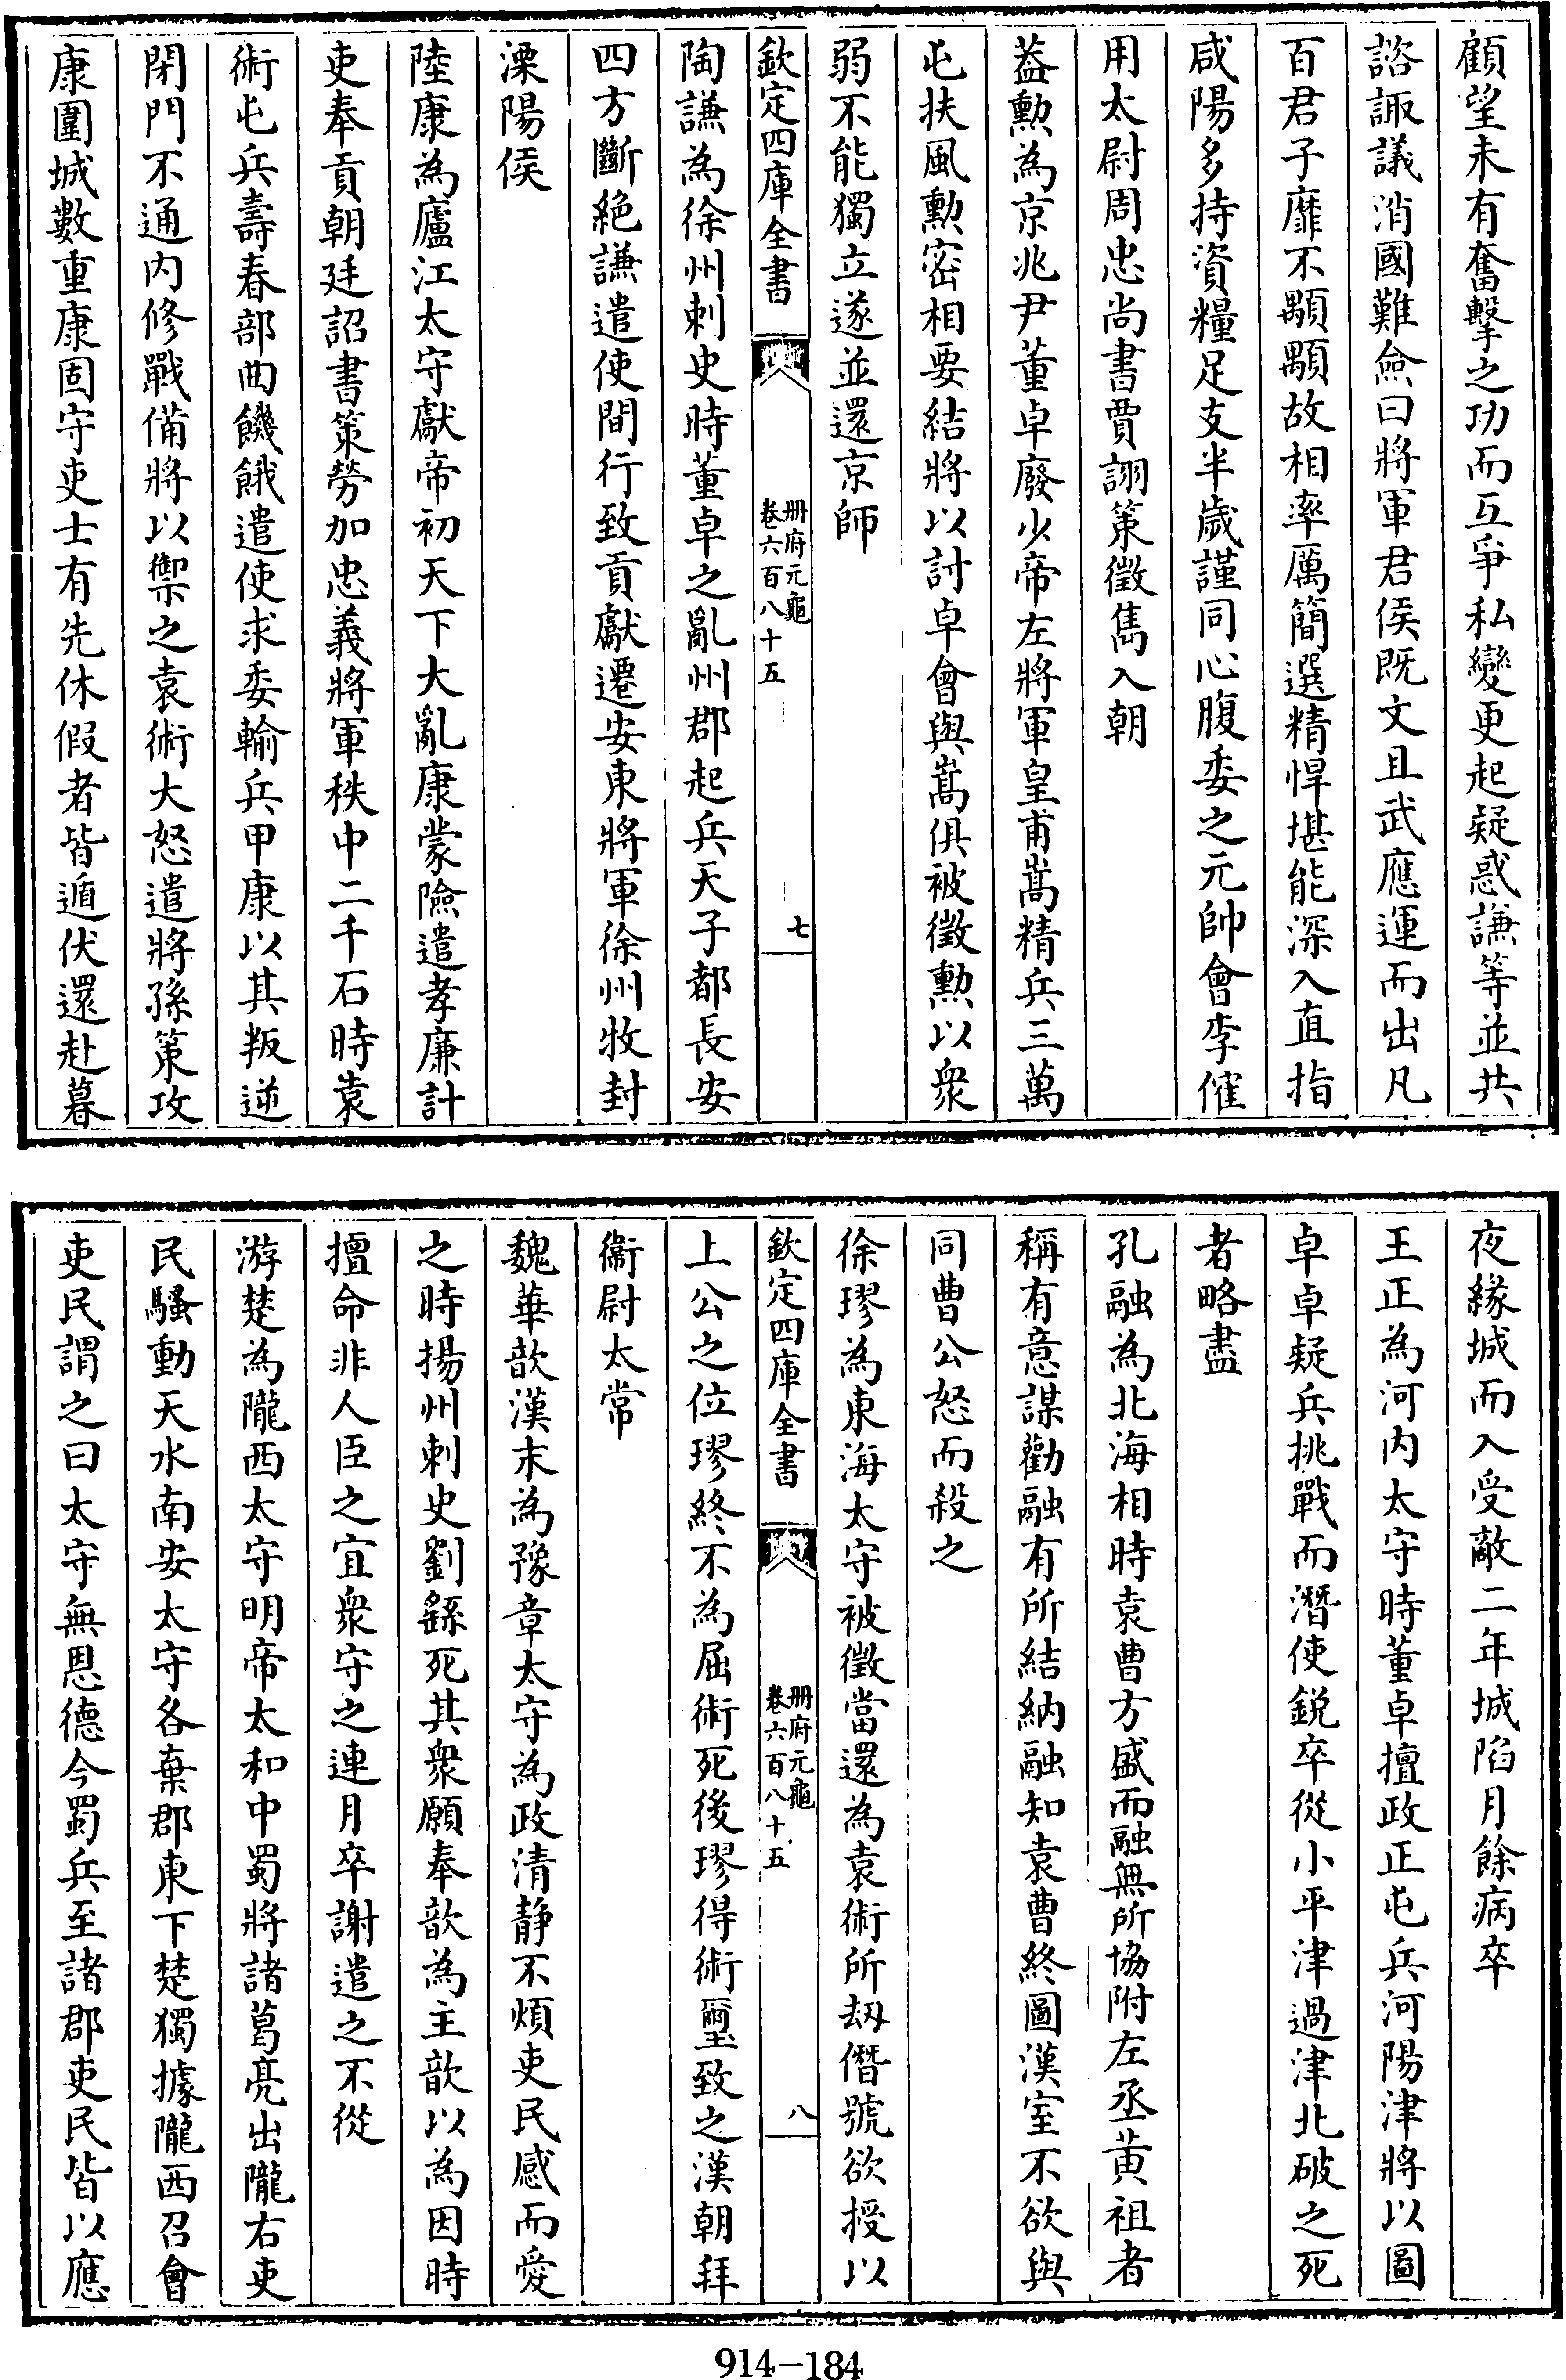 顧望未有奮擊之功而互爭私變更起疑惑謙等並共
諮諏議消國難僉曰將軍君侯既文且武應運而出凡
百君子靡不顒顒故相率厲簡選精悍堪能深入直指
咸陽多持資糧足支半歲謹同心腹委之元帥會李傕
用太尉周忠尚書賈詡策徵雋入朝
葢勲為京兆尹董卓廢少帝左將軍皇甫嵩精兵三萬
屯扶風勲密相要結將以討卓會與嵩俱被徵勲以衆
弱不能獨立遂並還京師
欽定四庫全書
冊府元龜
卷六百八十五
七
陶謙為徐州刺史時董卓之亂州郡起兵天子都長安
四方斷絶謙遣使間行致貢獻遷安東將軍徐州牧封
溧陽侯
陸康為廬江太守獻帝初天下大亂康蒙險遣孝廉計
吏奉貢朝廷詔書策勞加忠義將軍秩中二千石時袁
術屯兵壽春部曲饑餓遣使求委輸兵甲康以其叛逆
閉門不通内修戰備將以禦之袁術大怒遣將孫策攻
康圍城數重康固守吏士有先休假者皆遁伏還赴暮
夜緣城而入受敵二年城陷月餘病卒
王正為河内太守時董卓擅政正屯兵河陽津將以圖
卓卓疑兵挑戰而潛使鋭卒從小平津過津北破之死
者略盡
孔融為北海相時袁曹方盛而融無所協附左丞黄祖者
稱有意謀勸融有所結納融知袁曹終圖漢室不欲與
同曹公怒而殺之
徐璆為東海太守被徵當還為袁術所刼僭號欲授以
欽定四庫全書
冊府元龜
卷六百八十五
八
上公之位璆終不為屈術死後璆得術璽致之漢朝拜
衞尉太常
魏華歆漢末為豫章太守為政清静不煩吏民感而愛
之時揚州刺史劉繇死其衆願奉歆為主歆以為因時
擅命非人臣之宜衆守之連月卒謝遣之不從
游楚為隴西太守明帝太和中蜀將諸葛亮出隴右吏
民騷動天水南安太守各棄郡東下楚獨據隴西召會
吏民謂之曰太守無恩德今蜀兵至諸郡吏民皆以應
914-184